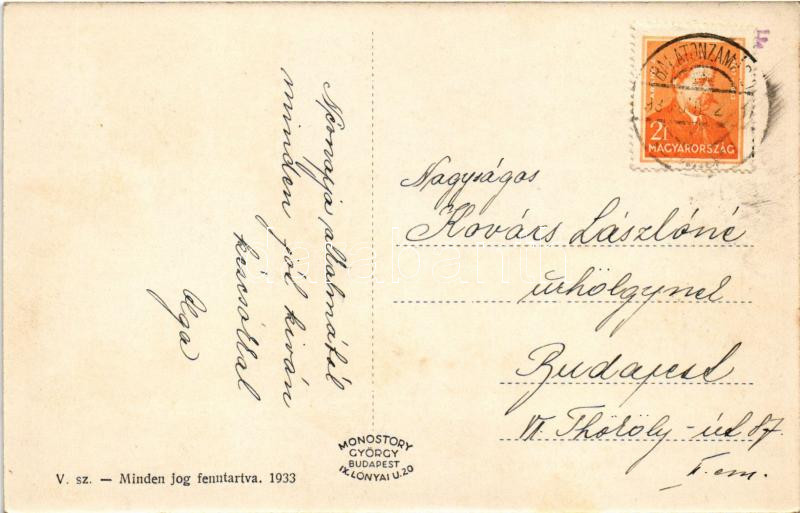 Névnapja alkalmából
minden jót kíván
kézcsókkal
Olga
BALATONZAMÁRDI
MAGYARORSZÁG
Nagyságos
Kovács Lászlóné
úrhölgynek
Budapest
VI. Thököly-út 87.
I. em.
MONOSTORY
GYÖRGY
BUDAPEST
IX. LÓNYAI U. 20
V. sz. — Minden jog fenntartva. 1933